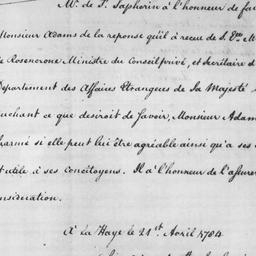 Mr. de St. Saphorin à l'honneur de fai
Monsieur Adams de la reponse qu'il à recue de S. Exce. M
de Rosencrone Ministre du Conseil privé, et Secrétaire d
Département des Affaires Etrangeres de Sa Majesté
ouchant ce que desiroit de savoir, Monsieur Adam
harmé si elle peut lui être agréable ainsi qu'a ses
t utile à ses concitoyens. Il a l'honneur de l'assurer
onsidération.
À La Haye le 21st. Avril 1784